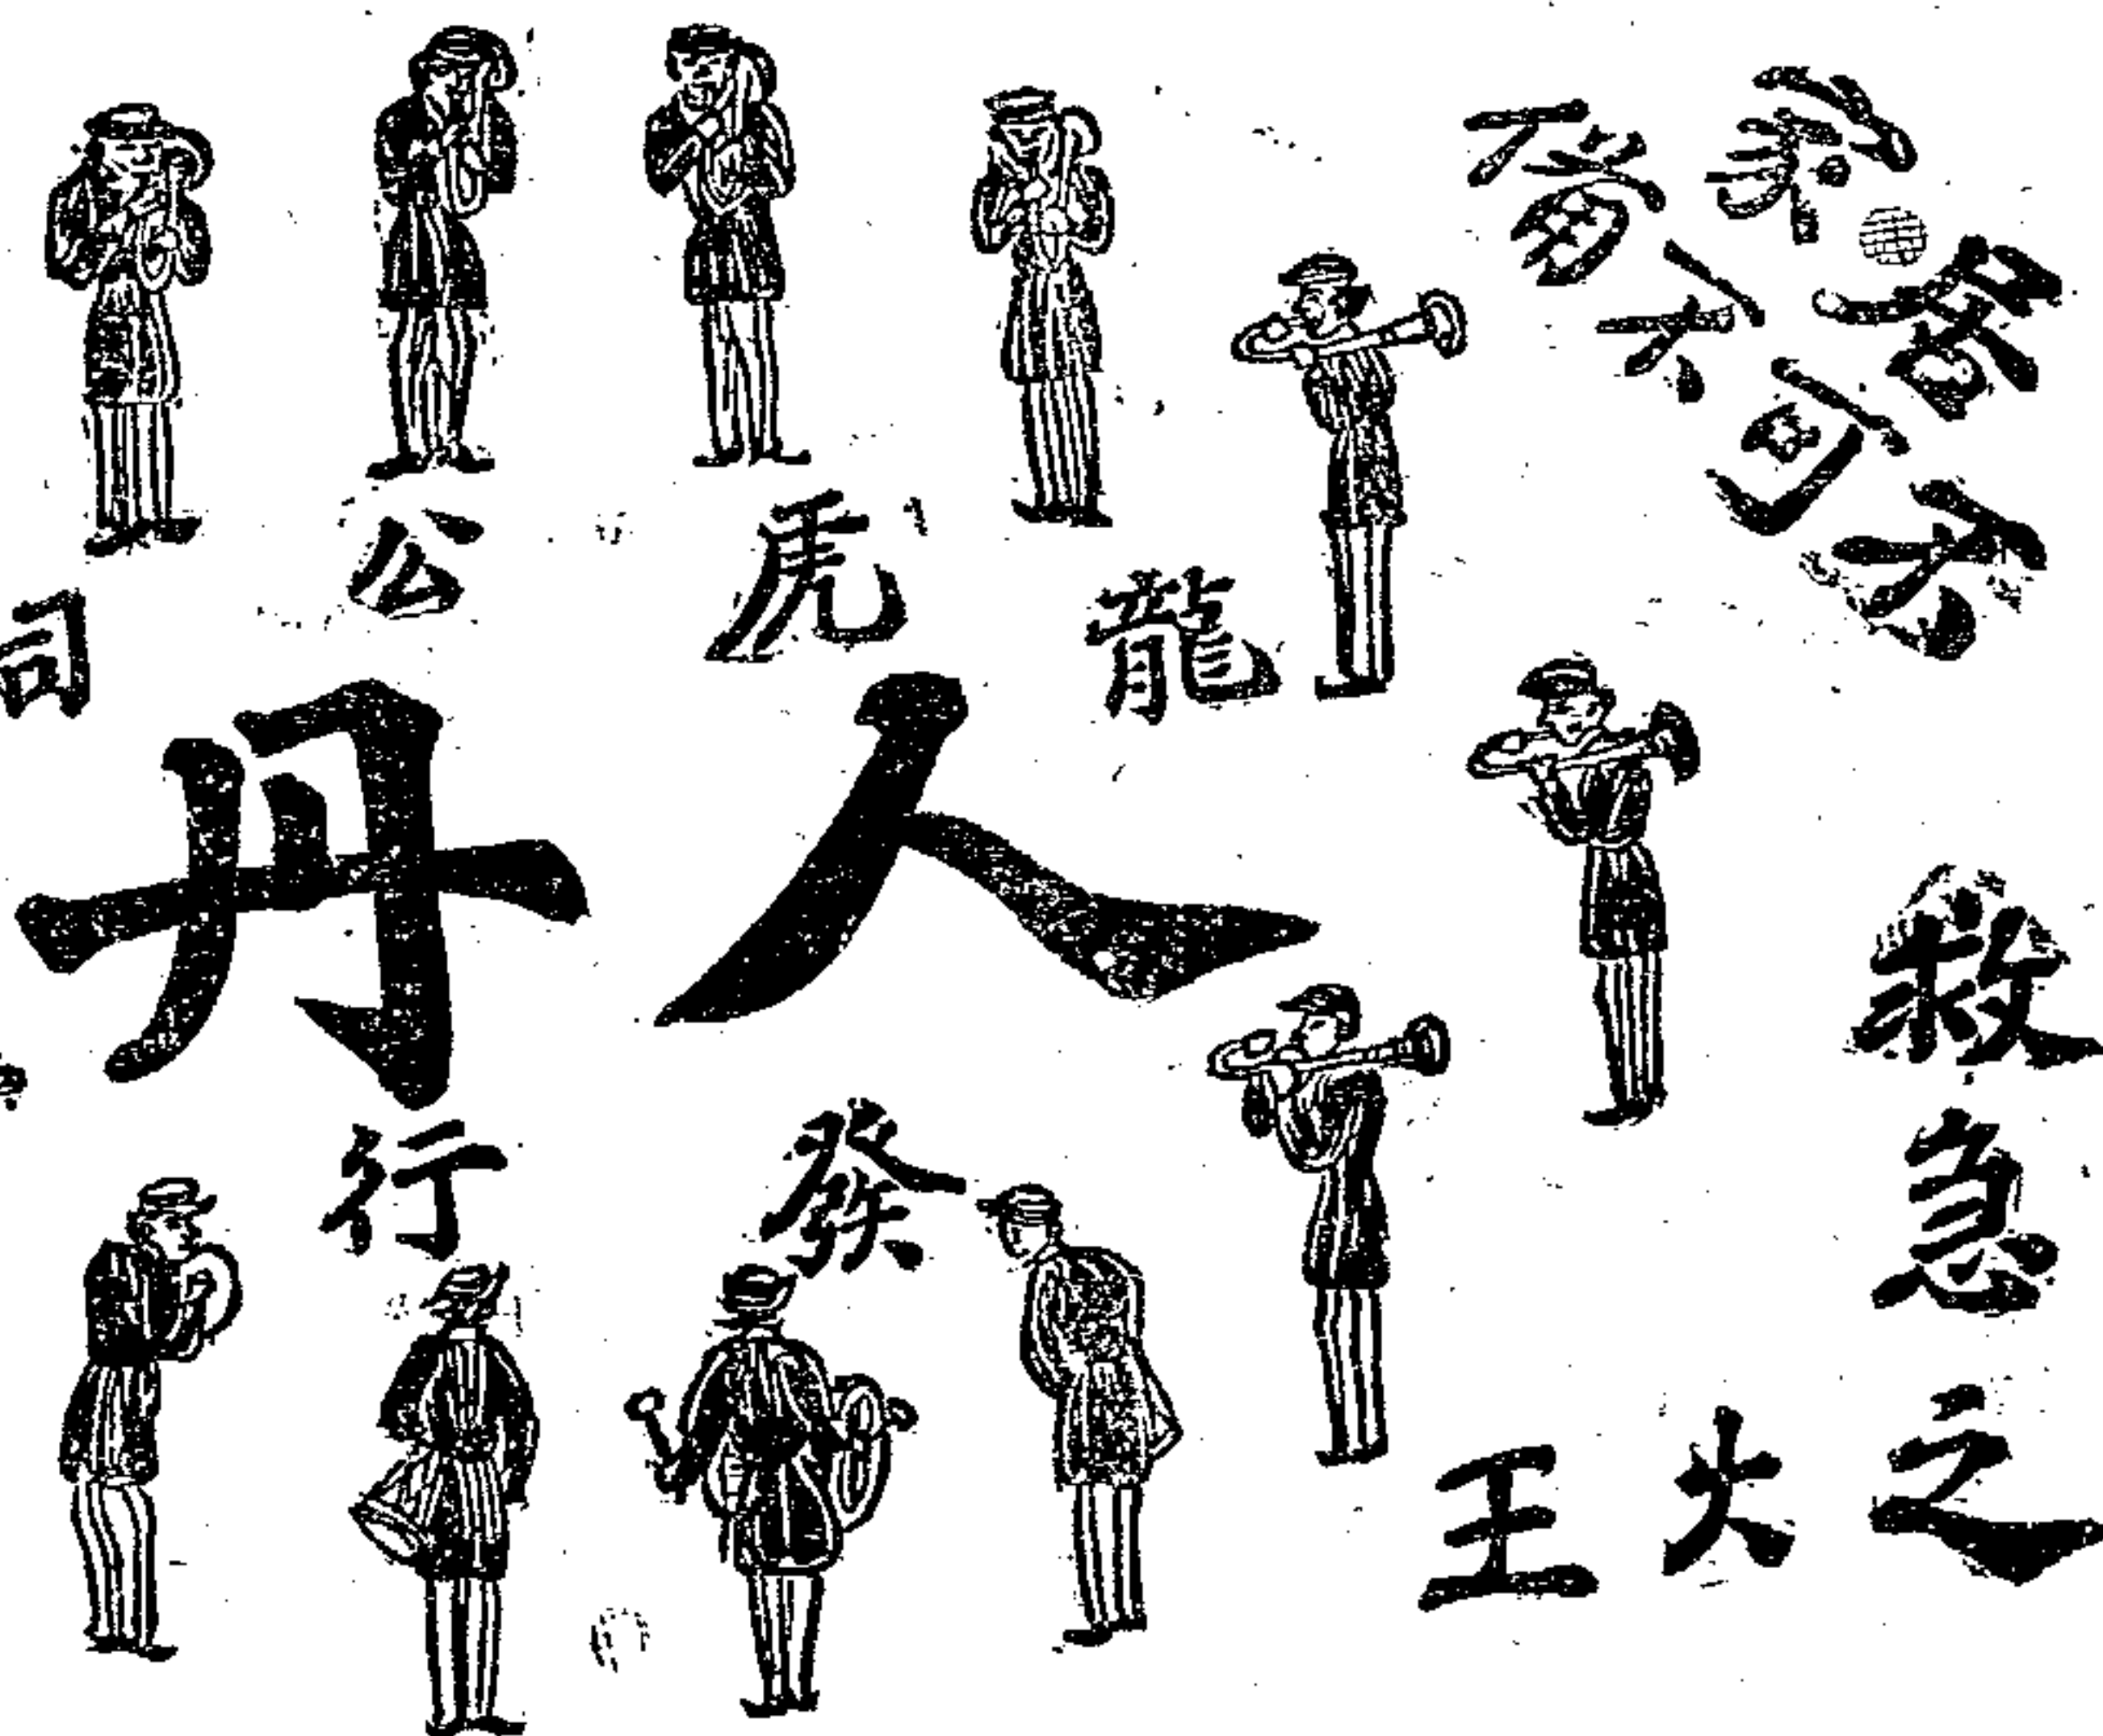 各家不可不備
救急之大王
龍虎公司
人丹
發行